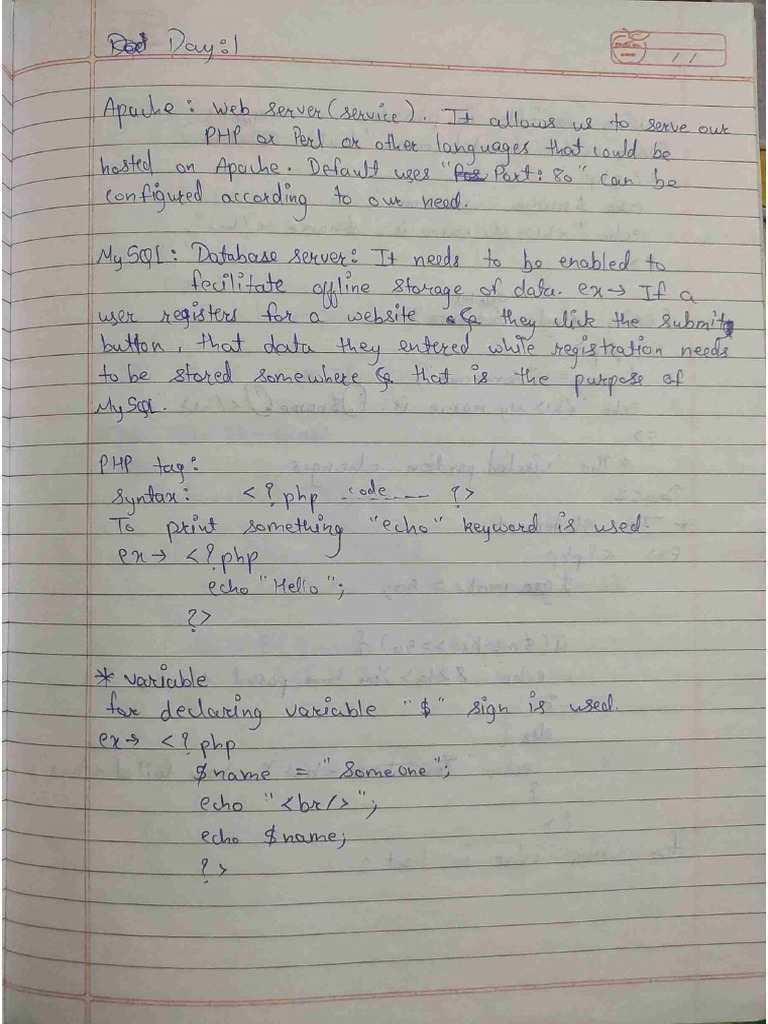 Day:1
Apache: Web server (service). It allows us to serve our
PHP or Perl or other languages that could be
hosted on Apache. Default uses "Port: 80" can be
configured according to our need.
MySQL: Database server: It needs to be enabled to
fecilitate offline storage of data. ex→ If a
user registers for a website & they click the submit
button, that data they entered while registration needs
to be stored somewhere & that is the purpose of
MySQL.
PHP tag:
Syntax: <?php code ?>
To print something "echo" keyword is used.
ex→ <?php
echo "Hello";
?>
* variable
for declaring variable "$" sign is used.
ex→ <?php
$name = "Someone";
echo "<br/>";
echo $name;
?>